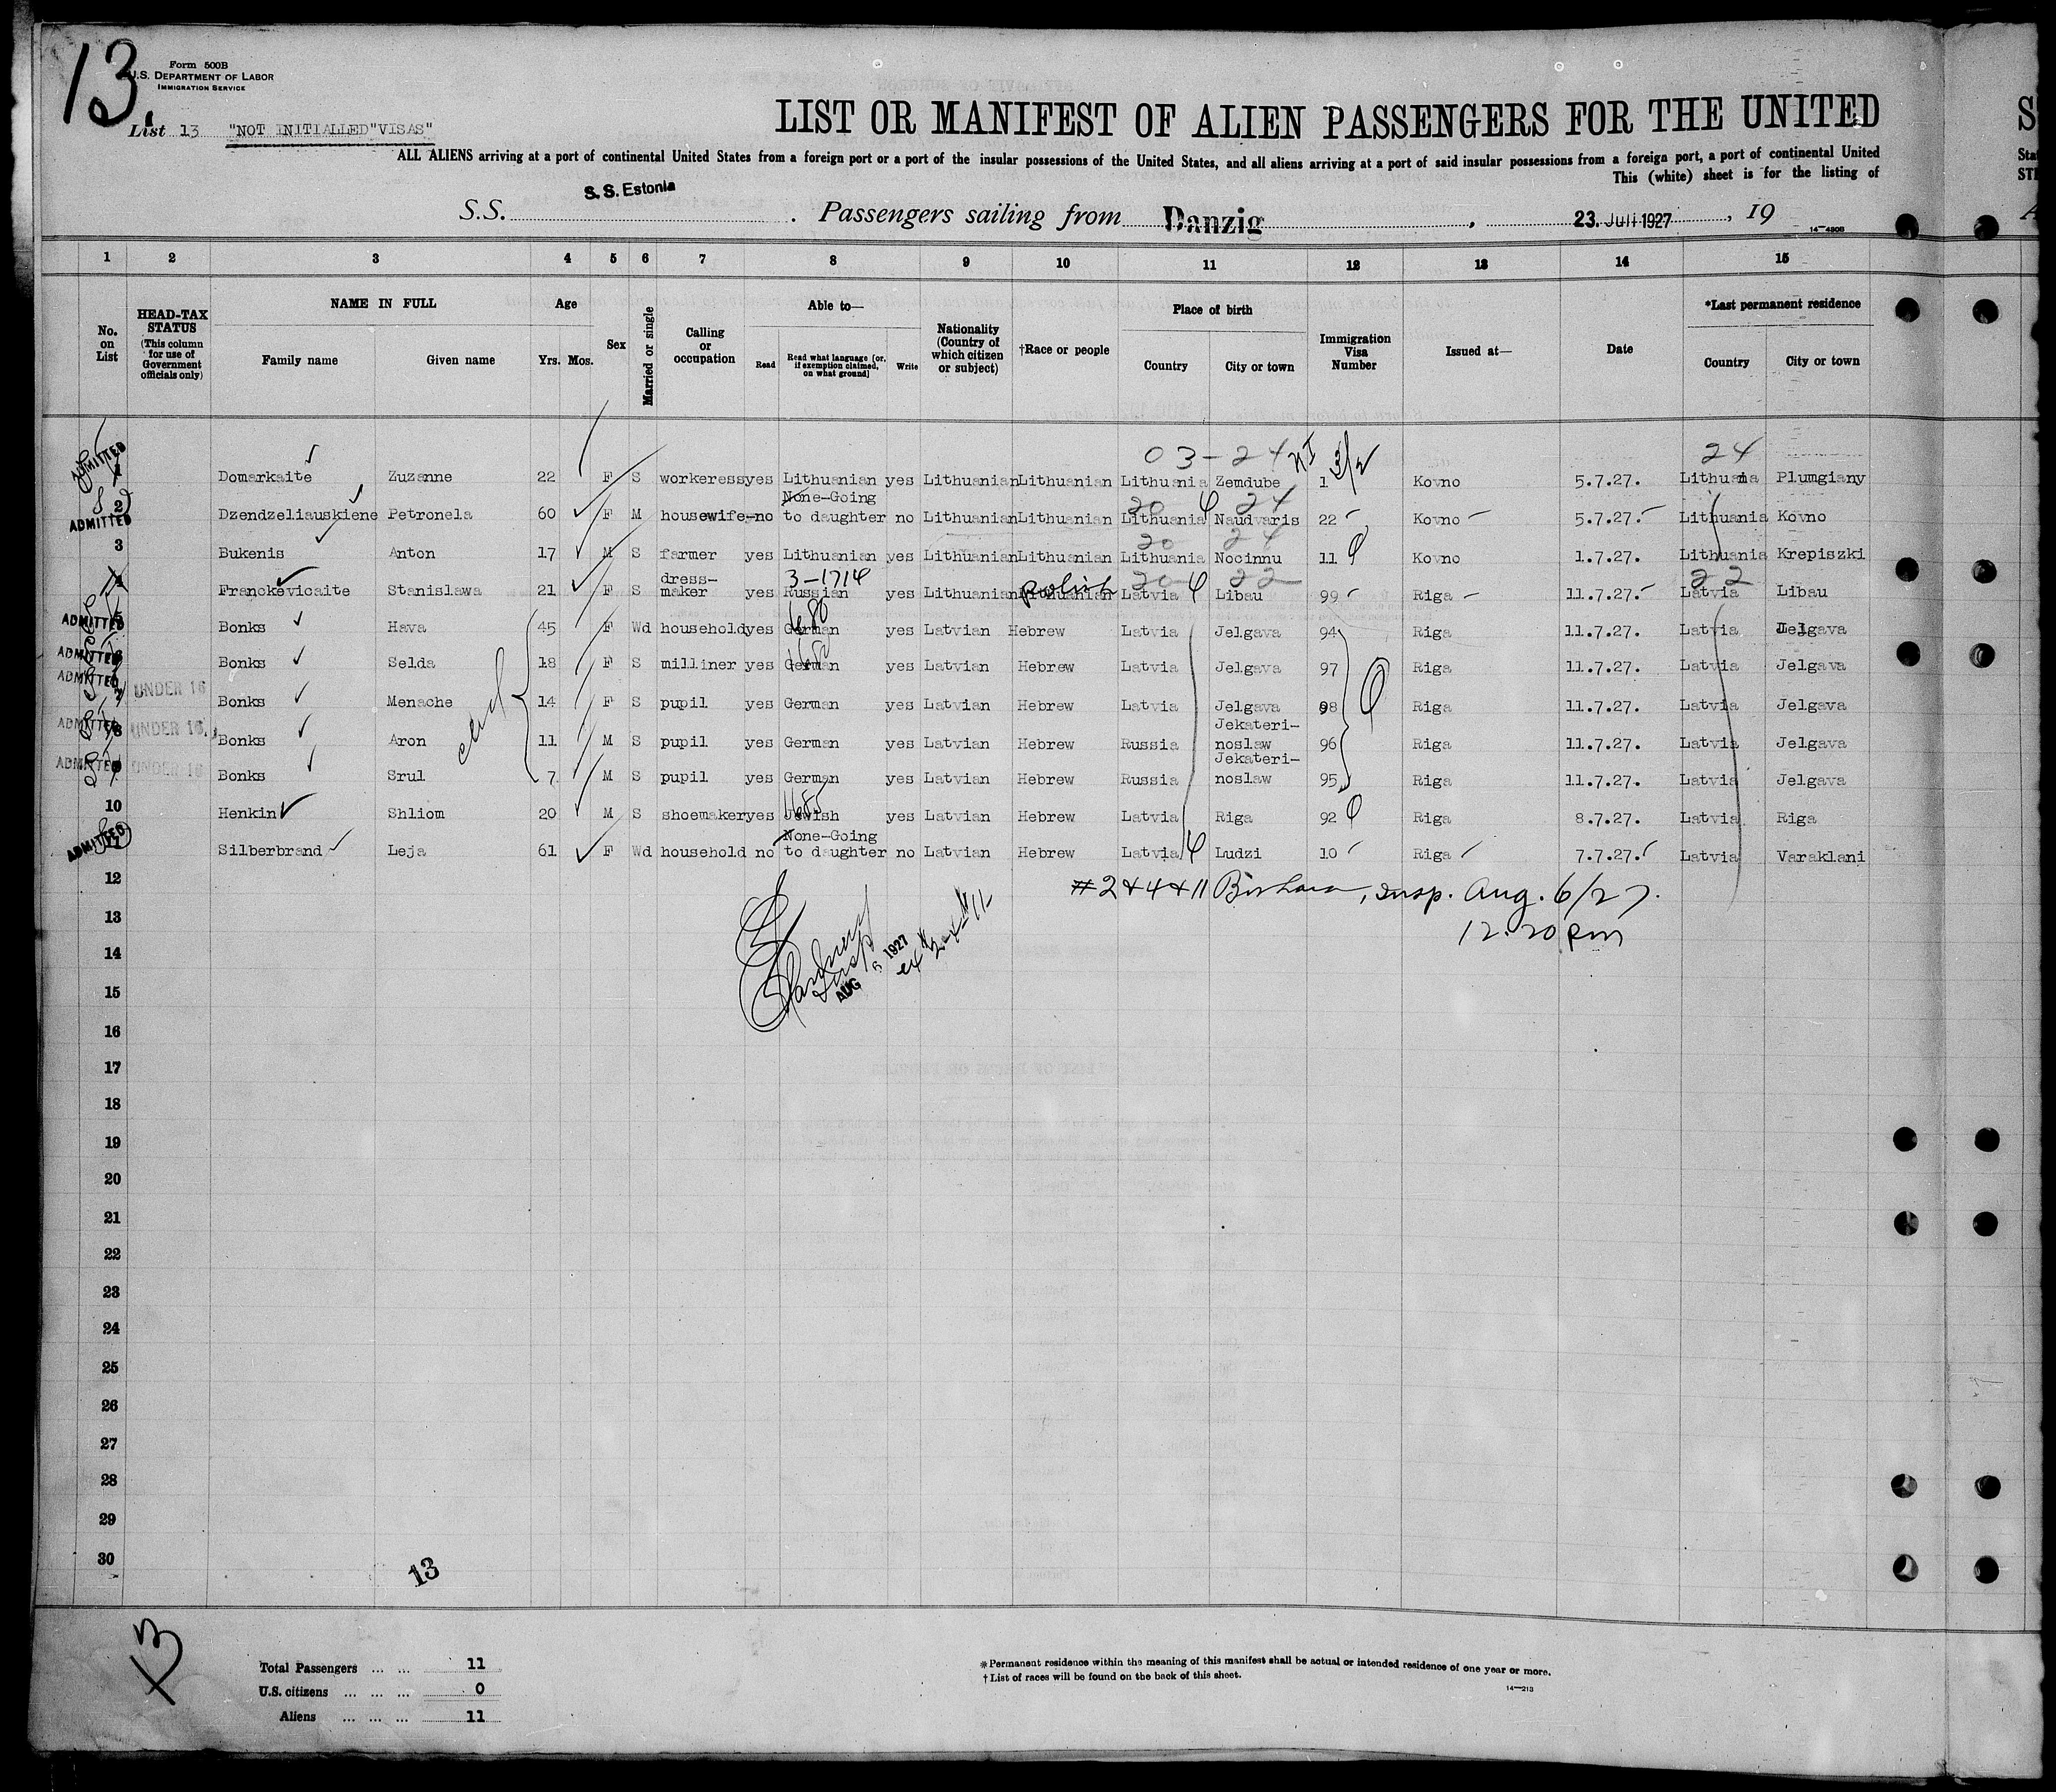 13.
Form 500B
U.S. DEPARTMENT OF LABOR
IMMIGRATION SERVICE
List 13 "NOT INITIALLED"VISAS"
LIST OR MANIFEST OF ALIEN PASSENGERS FOR THE UNITED
ALL ALIENS arriving at a port of continental United States from a foreign port or a port of the insular possessions of the United States, and all aliens arriving at a port of said insular possessions from a foreign port, a port of continental United
This (white) sheet is for the listing of
S.S. S.S. Estonia . Passengers sailing from Danzig , 23. Juli 1927 , 19
14—480B
1 2 3 4 5 6 7 8 9 10 11 12 13 14 15
No. on List
HEAD-TAX STATUS (This column for use of Government officials only)
NAME IN FULL
Family name Given name
Age
Yrs. Mos.
Sex
Married or single
Calling or occupation
Able to—
Read
Read what language [or, if exemption claimed, on what ground]
Write
Nationality (Country of which citizen or subject)
†Race or people
Place of birth
Country City or town
Immigration Visa Number
Issued at—
Date
*Last permanent residence
Country City or town
03-24 24
ADMITTED 1 Domarkaite Zuzanne 22 F S workeress yes Lithuanian yes Lithuanian Lithuanian Lithuania Zemdube 1 Kovno 5.7.27. Lithuania Plumgiany
None-Going 20 24
ADMITTED 2 Dzendzeliauskiene Petronela 60 F M housewife-no to daughter no Lithuanian Lithuanian Lithuania Naudvaris 22 Kovno 5.7.27. Lithuania Kovno
20 24
3 Bukenis Anton 17 M S farmer yes Lithuanian yes Lithuanian Lithuanian Lithuania Nocinnu 11 Kovno 1.7.27. Lithuania Krepiszki
dress- 3-1714 polish 20 22 22
4 Franckevicaite Stanislawa 21 F S maker yes Russian yes Lithuanian Lithuanian Latvia Libau 99 Riga 11.7.27. Latvia Libau
ADMITTED 5 Bonks Hava 45 F Wd household yes German yes Latvian Hebrew Latvia Jelgava 94 Riga 11.7.27. Latvia Jelgava
ADMITTED 6 Bonks Selda 18 F S milliner yes German yes Latvian Hebrew Latvia Jelgava 97 Riga 11.7.27. Latvia Jelgava
ADMITTED 7 UNDER 16 Bonks Menache 14 F S pupil yes German yes Latvian Hebrew Latvia Jelgava 98 Riga 11.7.27. Latvia Jelgava
Jekateri-
ADMITTED 8 UNDER 16 Bonks Aron 11 M S pupil yes German yes Latvian Hebrew Russia noslaw 96 Riga 11.7.27. Latvia Jelgava
Jekateri-
ADMITTED 9 UNDER 16 Bonks Srul 7 M S pupil yes German yes Latvian Hebrew Russia noslaw 95 Riga 11.7.27. Latvia Jelgava
10 Henkin Shliom 20 M S shoemaker yes Jewish yes Latvian Hebrew Latvia Riga 92 Riga 8.7.27. Latvia Riga
None-Going
ADMITTED 11 Silberbrand Leja 61 F Wd household no to daughter no Latvian Hebrew Latvia Ludzi 10 Riga 7.7.27. Latvia Varaklani
12
#2&4&11 , Insp. Aug. 6/27.
12.20 pm
13
Insp
AUG 1927
14
15
16
17
18
19
20
21
22
23
24
25
26
27
28
29
30
13
13
Total Passengers ... ... 11
U.S. citizens ... ... ... 0
Aliens ... ... ... 11
*Permanent residence within the meaning of this manifest shall be actual or intended residence of one year or more.
†List of races will be found on the back of this sheet.
14—213